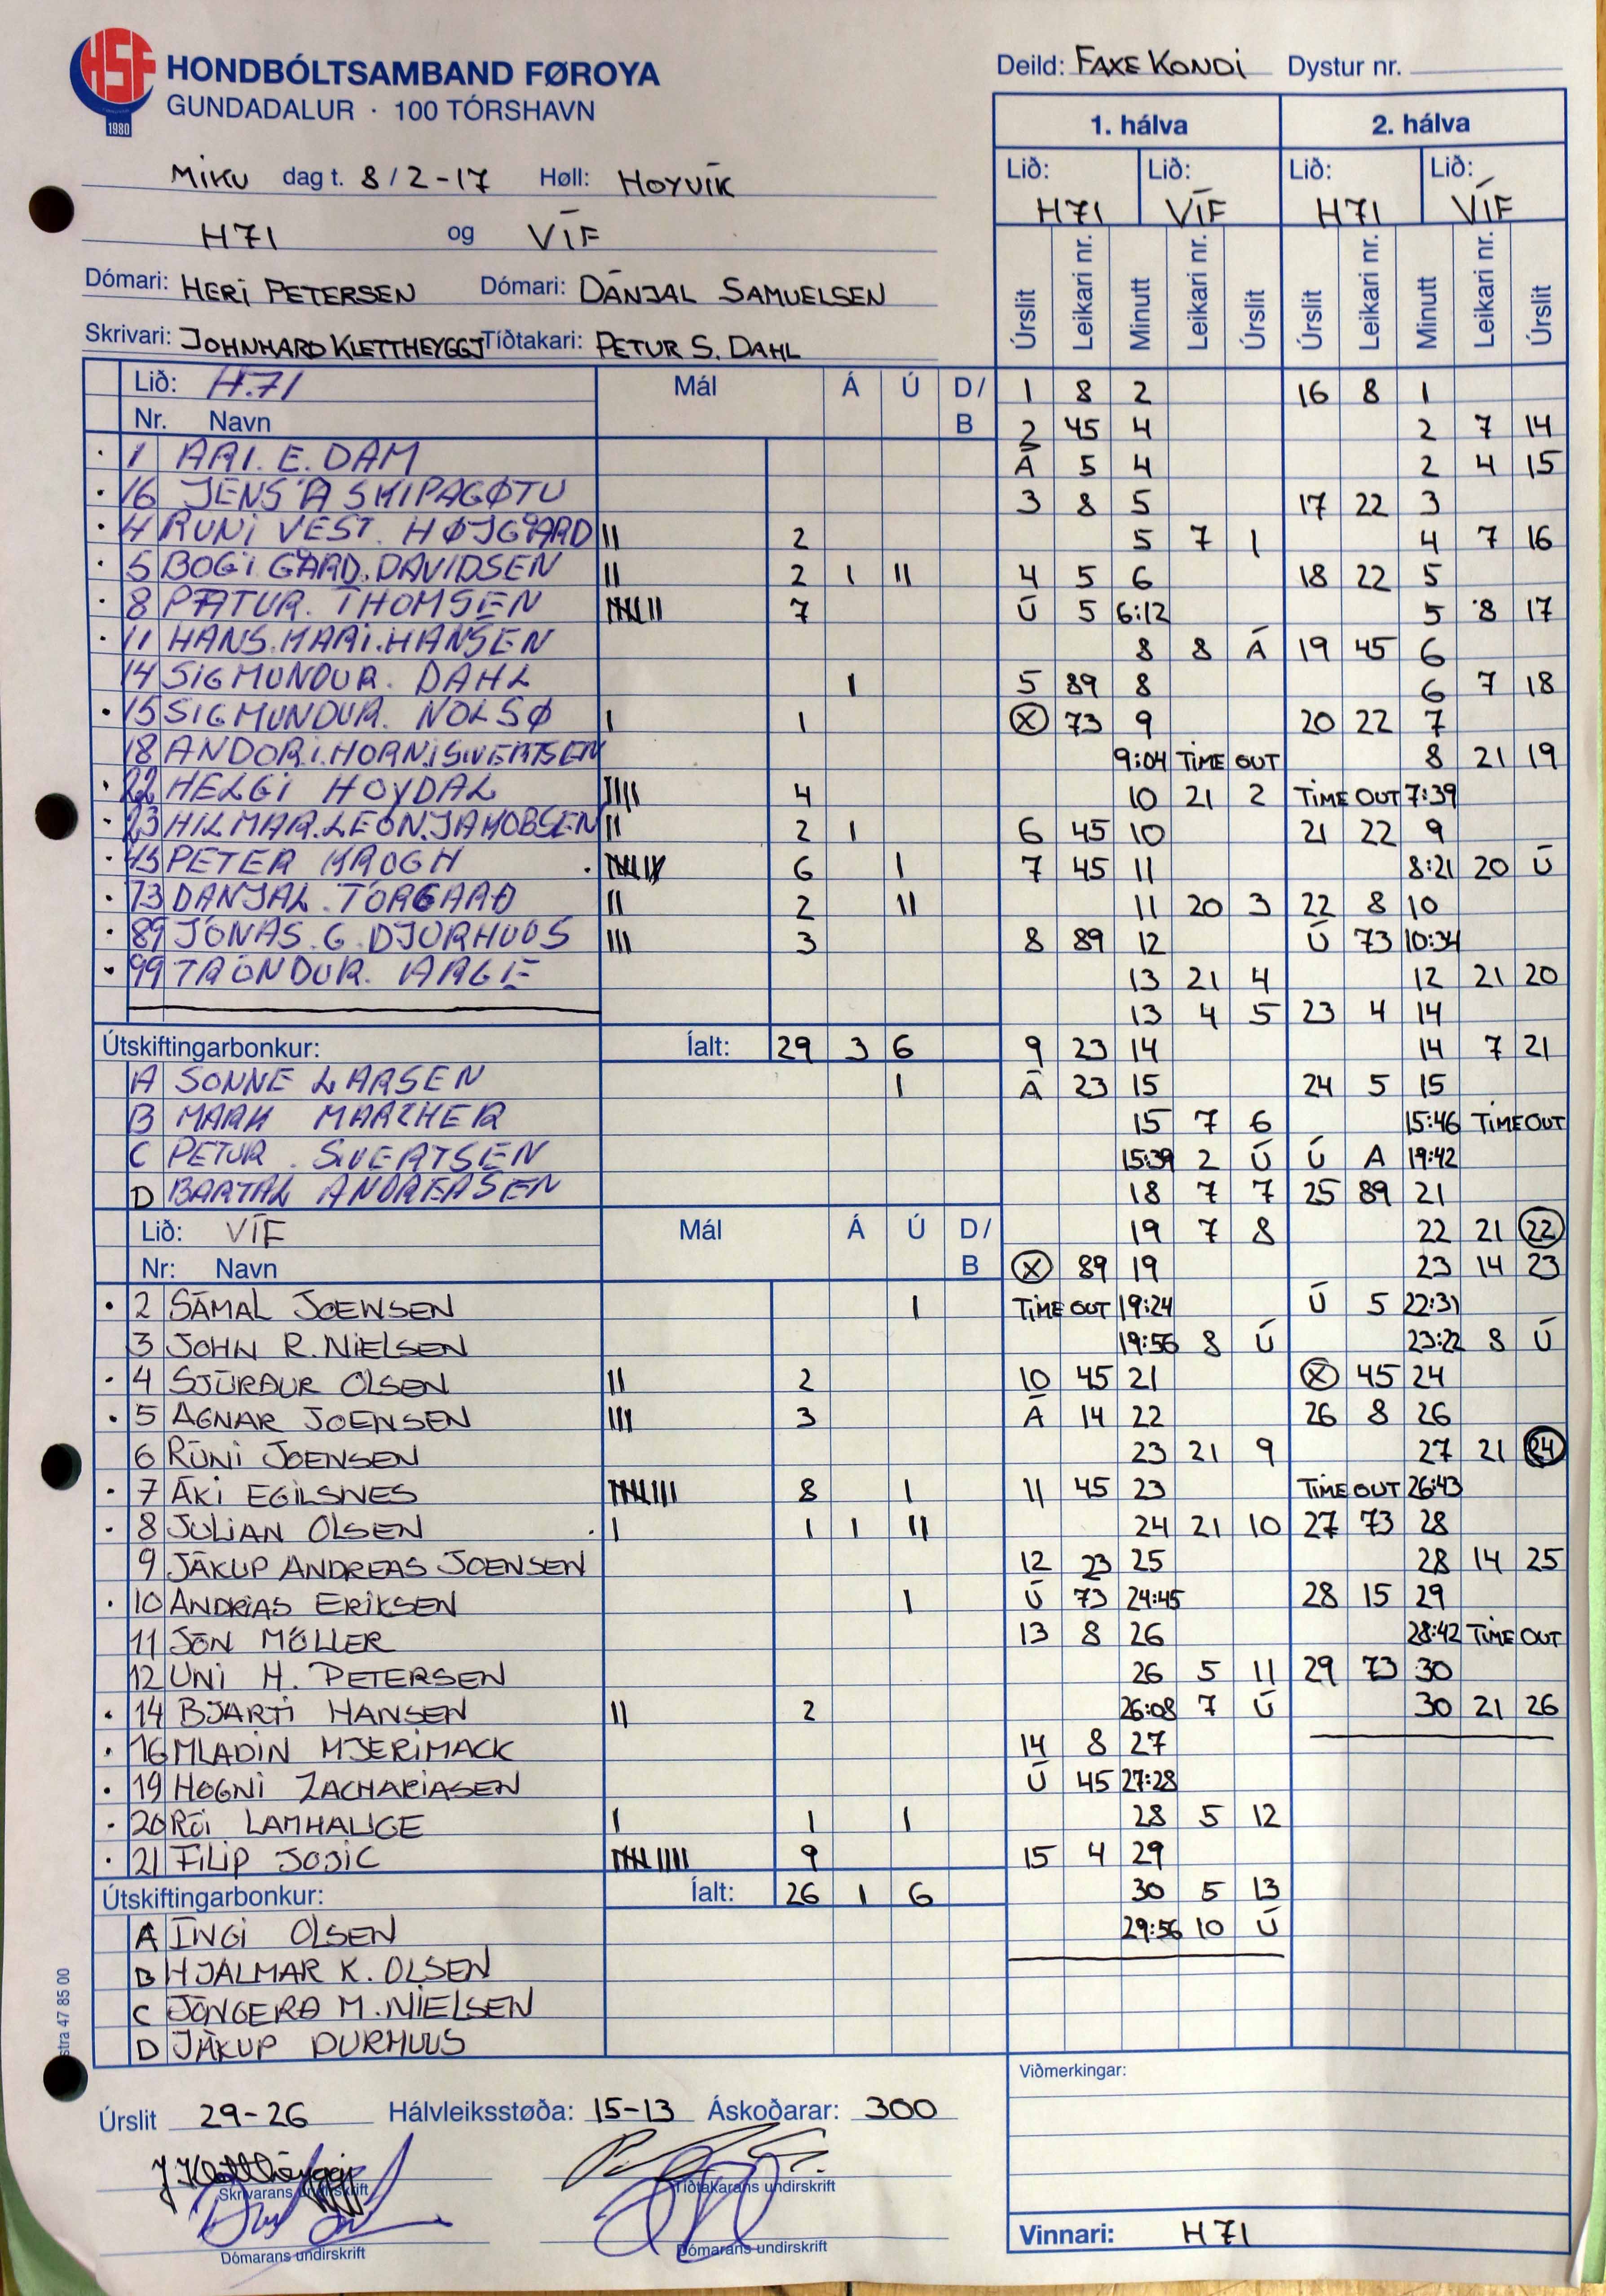 HSF
1980
HONDBÓLTSAMBAND FØROYA
GUNDADALUR · 100 TÓRSHAVN
Deild: FAXE KONDI Dystur nr.
MIKU dag t. 8/2-17 Høll: HOYVÍK
H71 og VÍF
Dómari: HERI PETERSEN Dómari: DÁNJAL SAMUELSEN
Skrivari: JOHNHARD KLETTHEYGGJ Tíðtakari: PETUR S. DAHL
Lið: H.71 Mál Á Ú D/
Nr. Navn B
1 ARI. E. DAM
16 JENS Á SKIPAGØTU
4 RUNI VEST. HØJGÅARD II 2
5 BOGI GÅRD. DAVIDSEN II 2 I II
8 PÆTUR. THOMSEN IIIII II 7
11 HANS. MARI. HANSEN
14 SIGMUNDUR. DAHL I
15 SIGMUNDUR. NOLSØ I 1
18 ANDORI. HORNI SIVERTSEN
22 HELGI HOYDAL IIII 4
23 HILMAR. LEON. JAKOBSEN II 2 I
45 PETER KROGH IIIII I 6 I
73 DANJAL. TORGARÐ II 2 II
89 JÓNAS. G. DJURHUUS III 3
99 TRÓNDUR. ARGE
Útskiftingarbonkur: Íalt: 29 3 6
A SONNE LARSEN I
B MARK MARCHER
C PETUR. SIVERTSEN
D BARTAL ANDREASEN
Lið: VÍF Mál Á Ú D/
Nr: Navn B
2 SÁMAL JOENSEN I
3 JOHN R. NIELSEN
4 SJÚRÐUR OLSEN II 2
5 AGNAR JOENSEN III 3
6 RÚNI JOENSEN
7 ÁKI EGILSNES IIIII III 8 I
8 JULIAN OLSEN I 1 I II
9 JÁKUP ANDREAS JOENSEN
10 ANDRIAS ERIKSEN I
11 JÓN MÖLLER
12 UNI H. PETERSEN
14 BJARTI HANSEN II 2
16 MLADIN MJERIMACK
19 HOGNI ZACHARIASEN
20 RÓI LAMHAUGE I 1 I
21 FILIP JOJIC IIIII IIII 9
Útskiftingarbonkur: Íalt: 26 1 6
A INGI OLSEN
B HJALMAR K. OLSEN
C JÓNGERÐ M. NIELSEN
D JÁKUP DURHUUS
Úrslit 29-26 Hálvleiksstøða: 15-13 Áskoðarar: 300
Skrivarans undirskrift Tíðtakarans undirskrift
Dómarans undirskrift Dómarans undirskrift
1. hálva 2. hálva
Lið: Lið: Lið: Lið:
H71 VÍF H71 VÍF
Úrslit Leikari nr. Minutt Leikari nr. Úrslit Úrslit Leikari nr. Minutt Leikari nr. Úrslit
1 8 2 16 8 1
2 45 4 2 7 14
Á 5 4 2 4 15
3 8 5 17 22 3
5 7 1 4 7 16
4 5 6 18 22 5
Ú 5 6:12 5 8 17
8 8 Á 19 45 6
5 89 8 6 7 18
X 73 9 20 22 7
9:04 TIME OUT 8 21 19
10 21 2 TIME OUT 7:39
6 45 10 21 22 9
7 45 11 8:21 20 Ú
11 20 3 22 8 10
8 89 12 Ú 73 10:34
13 21 4 12 21 20
13 4 5 23 4 14
9 23 14 14 7 21
Á 23 15 24 5 15
15 7 6 15:46 TIME OUT
15:39 2 Ú Ú A 19:42
18 7 7 25 89 21
19 7 8 22 21 22
X 89 19 23 14 23
TIME OUT 19:24 Ú 5 22:31
19:56 8 Ú 23:22 8 Ú
10 45 21 X 45 24
Á 14 22 26 8 26
23 21 9 27 21 24
11 45 23 TIME OUT 26:43
24 21 10 27 73 28
12 23 25 28 14 25
Ú 73 24:45 28 15 29
13 8 26 28:42 TIME OUT
26 5 11 29 73 30
26:08 7 Ú 30 21 26
14 8 27
Ú 45 27:28
28 5 12
15 4 29
30 5 13
29:56 10 Ú
Viðmerkingar:
Vinnari: H71
stra 47 85 00